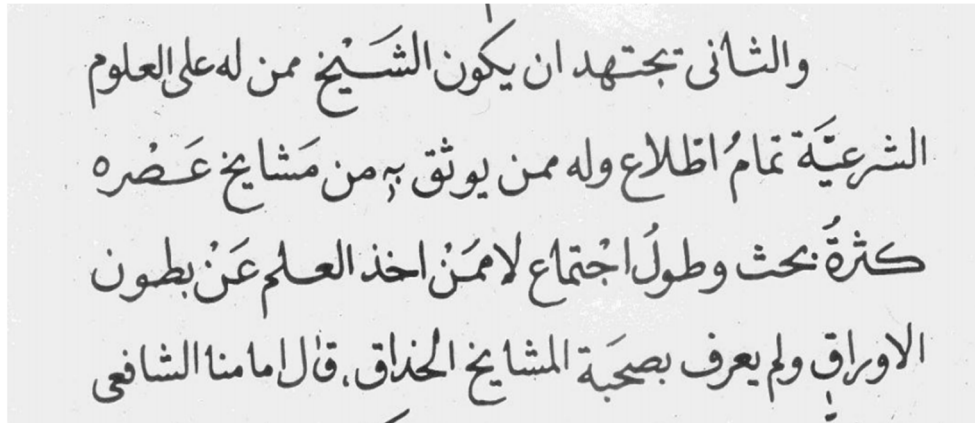 والثانى تجتهد ان يكون الشَّيْخ ممن له على العلوم
الشرعيَّة تمامُ اطلاع وله ممن يوثق به من مَشايخ عَصْره
كثرةُ بحث وطولُ اجْتماع لا ممَنْ اخذ العلم عَنْ بطون
الاوراق ولم يعرف بصحَبة المشايخ الحذاق، قال امامنا الشافعى